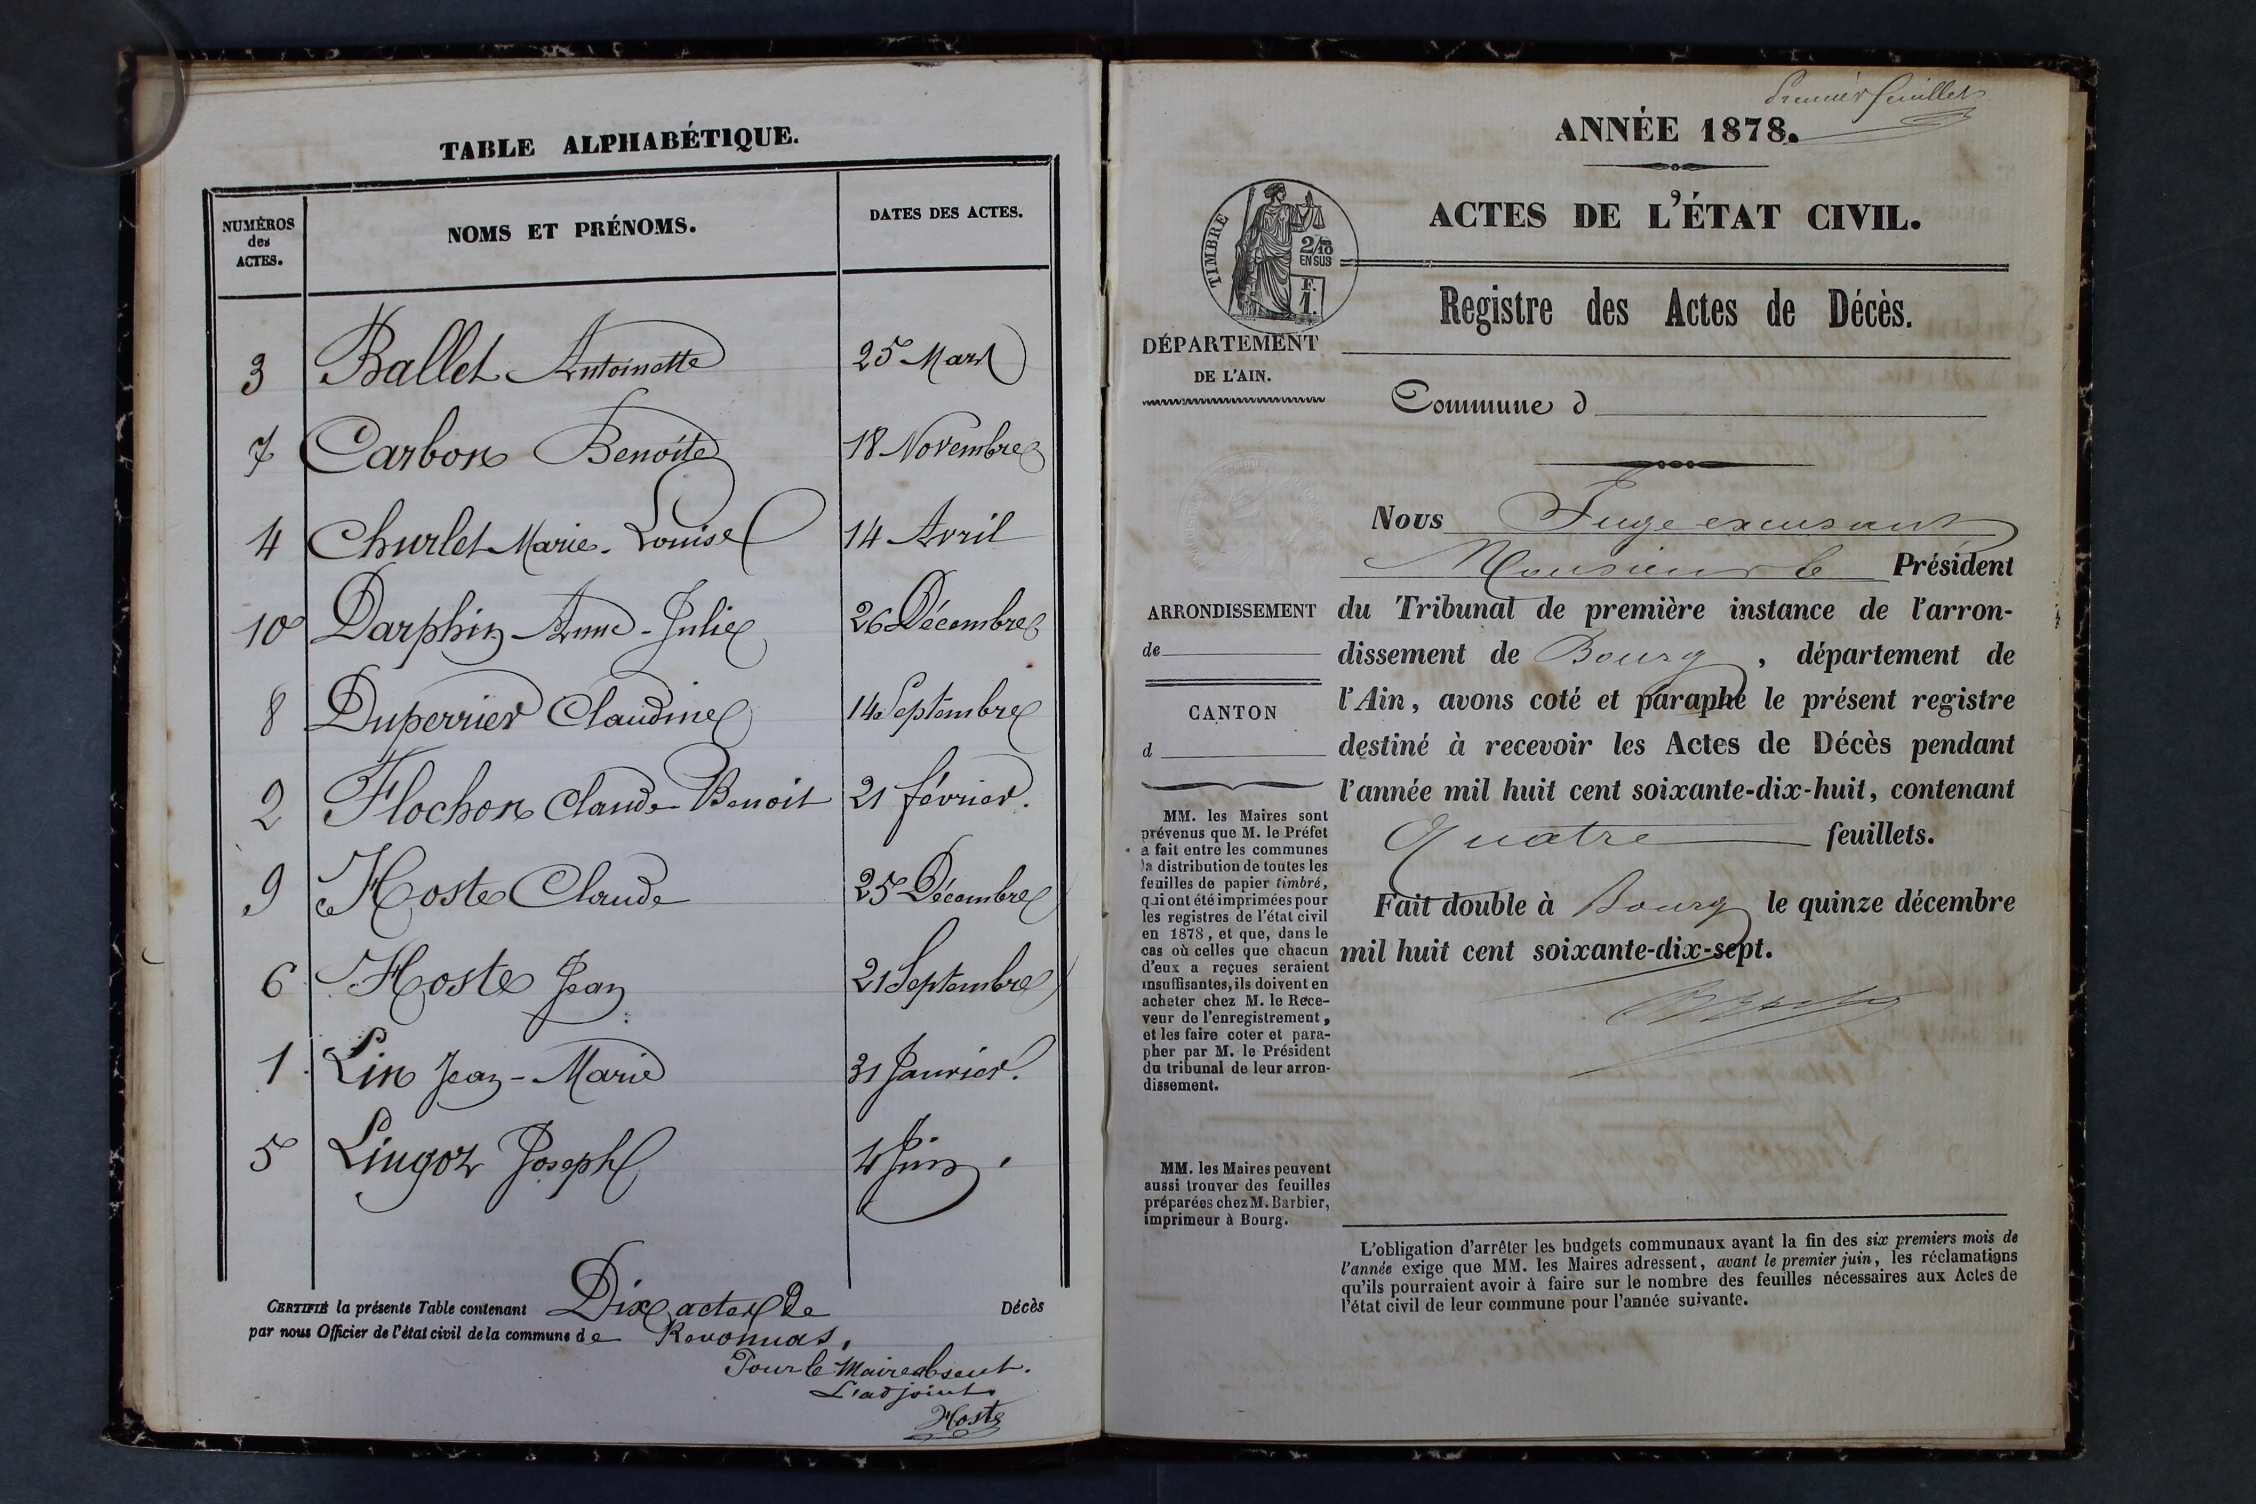 TABLE ALPHABÉTIQUE.
NUMÉROS
des
ACTES.
NOMS ET PRÉNOMS.
DATES DES ACTES.
3 Ballet Antoinette 25 Mars
7 Carbon Benoite 18 Novembre
4 Churlet Marie-Louise 14 Avril
10 Darphin Anne-Julie 26 Décembre
8 Duperrier Claudine 14 Septembre
2 Flochon Claude Benoit 21 février.
9 Hoste Claude 25 Décembre
6 Hoste Jean 21 Septembre
1 Lin Jean-Marie 31 Janvier.
5 Lingoz Joseph 4 Juin.
CERTIFIÉ la présente Table contenant Dix actes de Décès
par nous Officier de l'état civil de la commune de Revonnas,
Pour le Maire absent.
L'adjoint
Hoste
Premier feuillet
ANNÉE 1878.
ACTES DE L'ÉTAT CIVIL.
TIMBRE
2/10
EN SUS
F.
1.
Registre des Actes de Décès.
DÉPARTEMENT
DE L'AIN.
Commune d
Nous Juge excusant
Monsieur le Président
ARRONDISSEMENT
de
CANTON
d
du Tribunal de première instance de l'arron-
dissement de Bourg, département de
l'Ain, avons coté et paraphé le présent registre
destiné à recevoir les Actes de Décès pendant
l'année mil huit cent soixante-dix-huit, contenant
Quatre feuillets.
Fait double à Bourg le quinze décembre
mil huit cent soixante-dix-sept.
MM. les Maires sont
prévenus que M. le Préfet
a fait entre les communes
la distribution de toutes les
feuilles de papier timbré,
qui ont été imprimées pour
les registres de l'état civil
en 1878, et que, dans le
cas où celles que chacun
d'eux a reçues seraient
insuffisantes, ils doivent en
acheter chez M. le Rece-
veur de l'enregistrement,
et les faire coter et para-
pher par M. le Président
du tribunal de leur arron-
dissement.
MM. les Maires peuvent
aussi trouver des feuilles
préparées chez M. Barbier,
imprimeur à Bourg.
L'obligation d'arrêter les budgets communaux avant la fin des six premiers mois de
l'année exige que MM. les Maires adressent, avant le premier juin, les réclamations
qu'ils pourraient avoir à faire sur le nombre des feuilles nécessaires aux Actes de
l'état civil de leur commune pour l'année suivante.